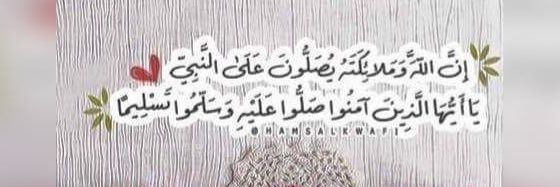 إِنَّ اللَّهَ وَمَلَائِكَتَهُ يُصَلُّونَ عَلَى النَّبِيِّ
يَا أَيُّهَا الَّذِينَ آمَنُوا صَلُّوا عَلَيْهِ وَسَلِّمُوا تَسْلِيمًا
@HAMSALKWAFI